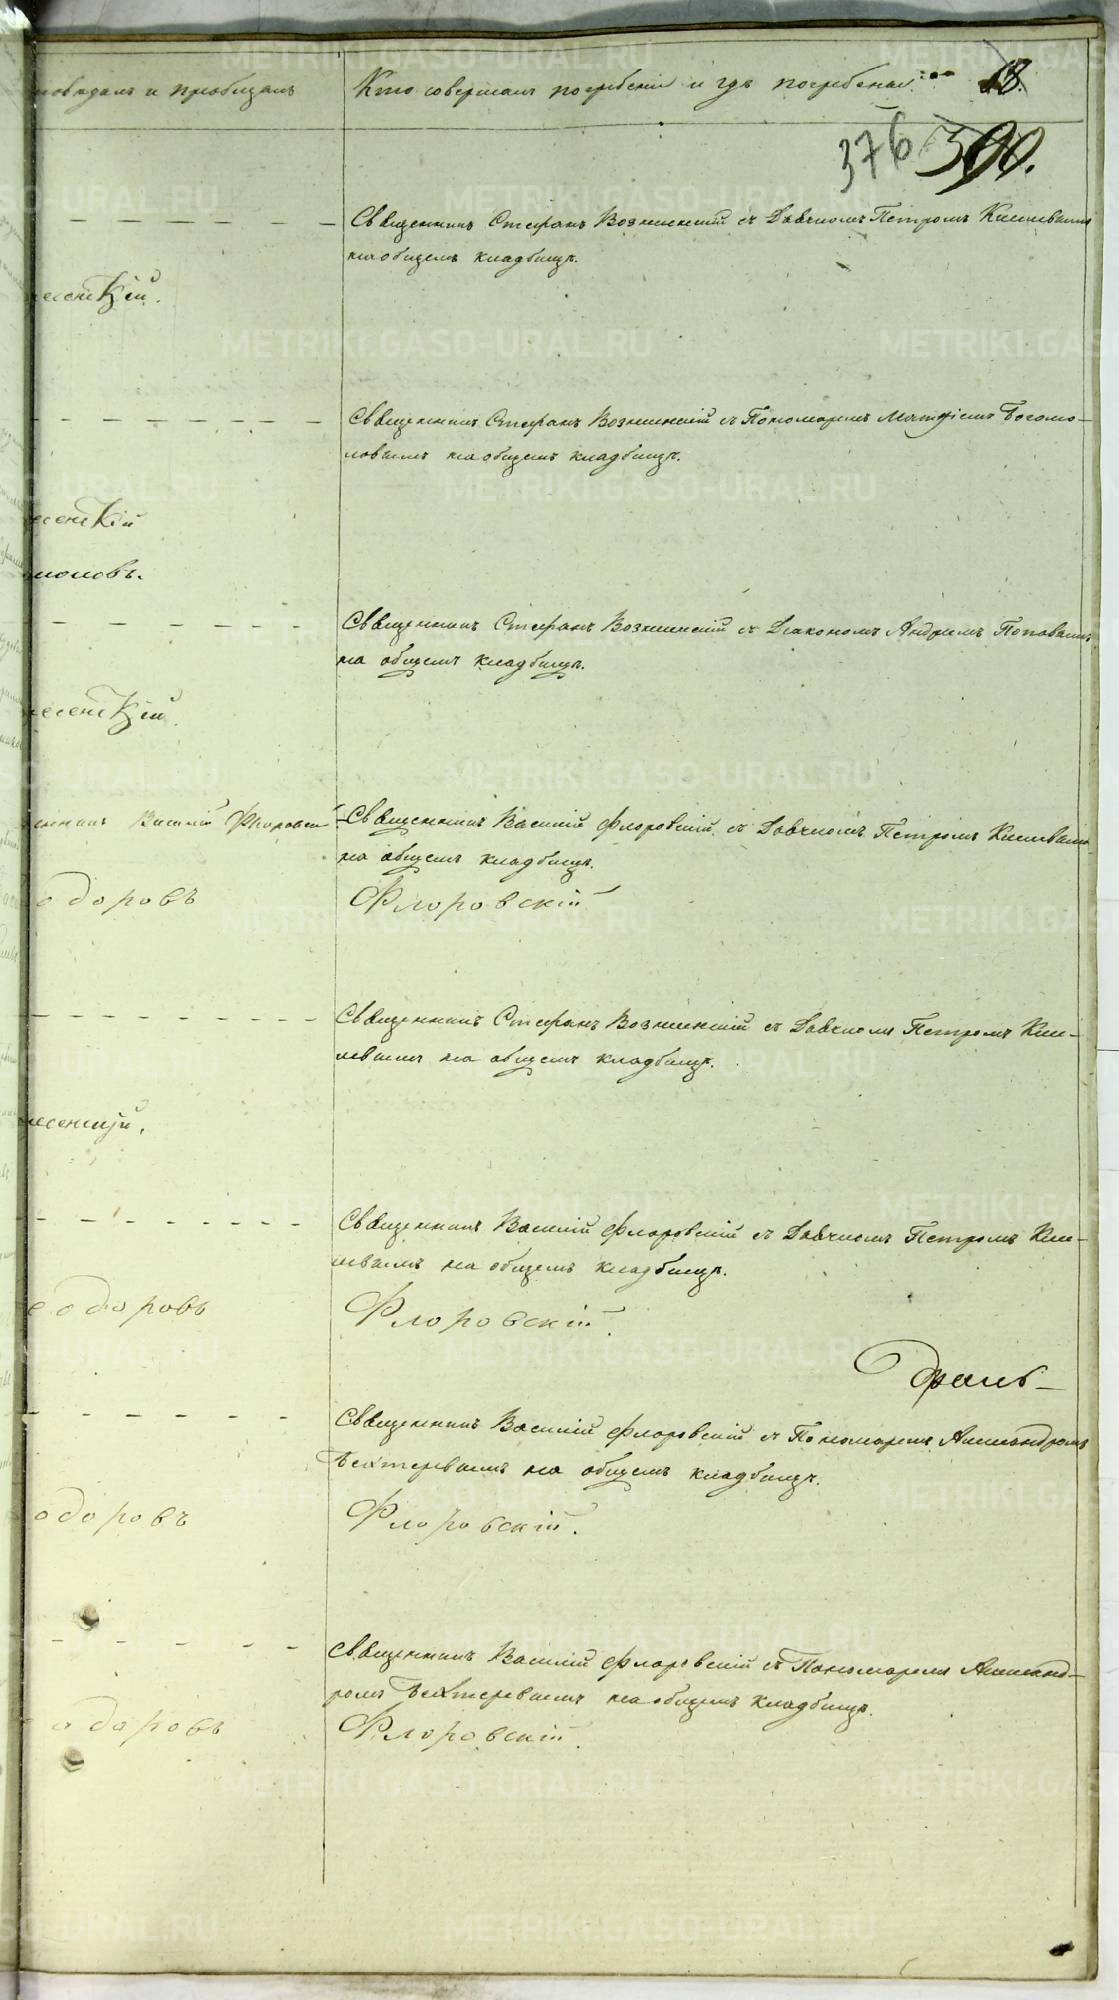 исповѣдалъ и пріобщалъ Кто совершалъ погребеніе и гдѣ погребены. 18.
376 390.
Священникъ Стефанъ Вознесенскій съ Дьячкомъ Петромъ Киселевымъ
на общемъ кладбищѣ.
несенскій.
Священникъ Стефанъ Вознесенскій съ Пономаремъ Матѳіемъ Богомо-
ловымъ на общемъ кладбищѣ.
несенскій
моновъ.
Священникъ Стефанъ Вознесенскій съ Діакономъ Андреемъ Поповымъ
на общемъ кладбищѣ.
несенскій.
щенникъ Василій Флоровскій Священникъ Василій Флоровскій съ Дьячкомъ Петромъ Киселевымъ
на общемъ кладбищѣ.
одоровъ Флоровскій
Священникъ Стефанъ Вознесенскій съ Дьячкомъ Петромъ Кисе-
левымъ на общемъ кладбищѣ.
несенскій.
Священникъ Василій Флоровскій съ Дьячкомъ Петромъ Кисе-
левымъ на общемъ кладбищѣ.
еодоровъ Флоровскій.
Священникъ Василій Флоровскій съ Пономаремъ Александромъ
Бехтеревымъ на общемъ кладбищѣ.
одоровъ Флоровскій.
Священникъ Василій Флоровскій съ Пономаремъ Александ-
ромъ Бехтеревымъ на общемъ кладбищѣ.
одоровъ Флоровскій.
METRIKI.GASO-URAL.RU